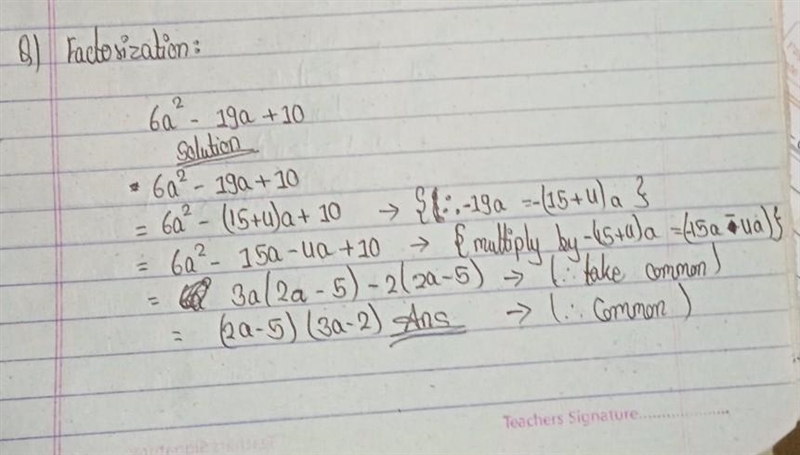 Q) Factorization:
6a² - 19a + 10
Solution
6a² - 19a + 10
= 6a² - (15+4)a + 10 → {(∵ -19a = -(15+4)a }
= 6a² - 15a - 4a + 10 → { multiply by -(15+4)a = (-15a - 4a)}
= 3a(2a - 5) - 2(2a - 5) → (∵ take common)
= (2a-5) (3a-2) Ans → (∵ Common)
Teachers Signature....................